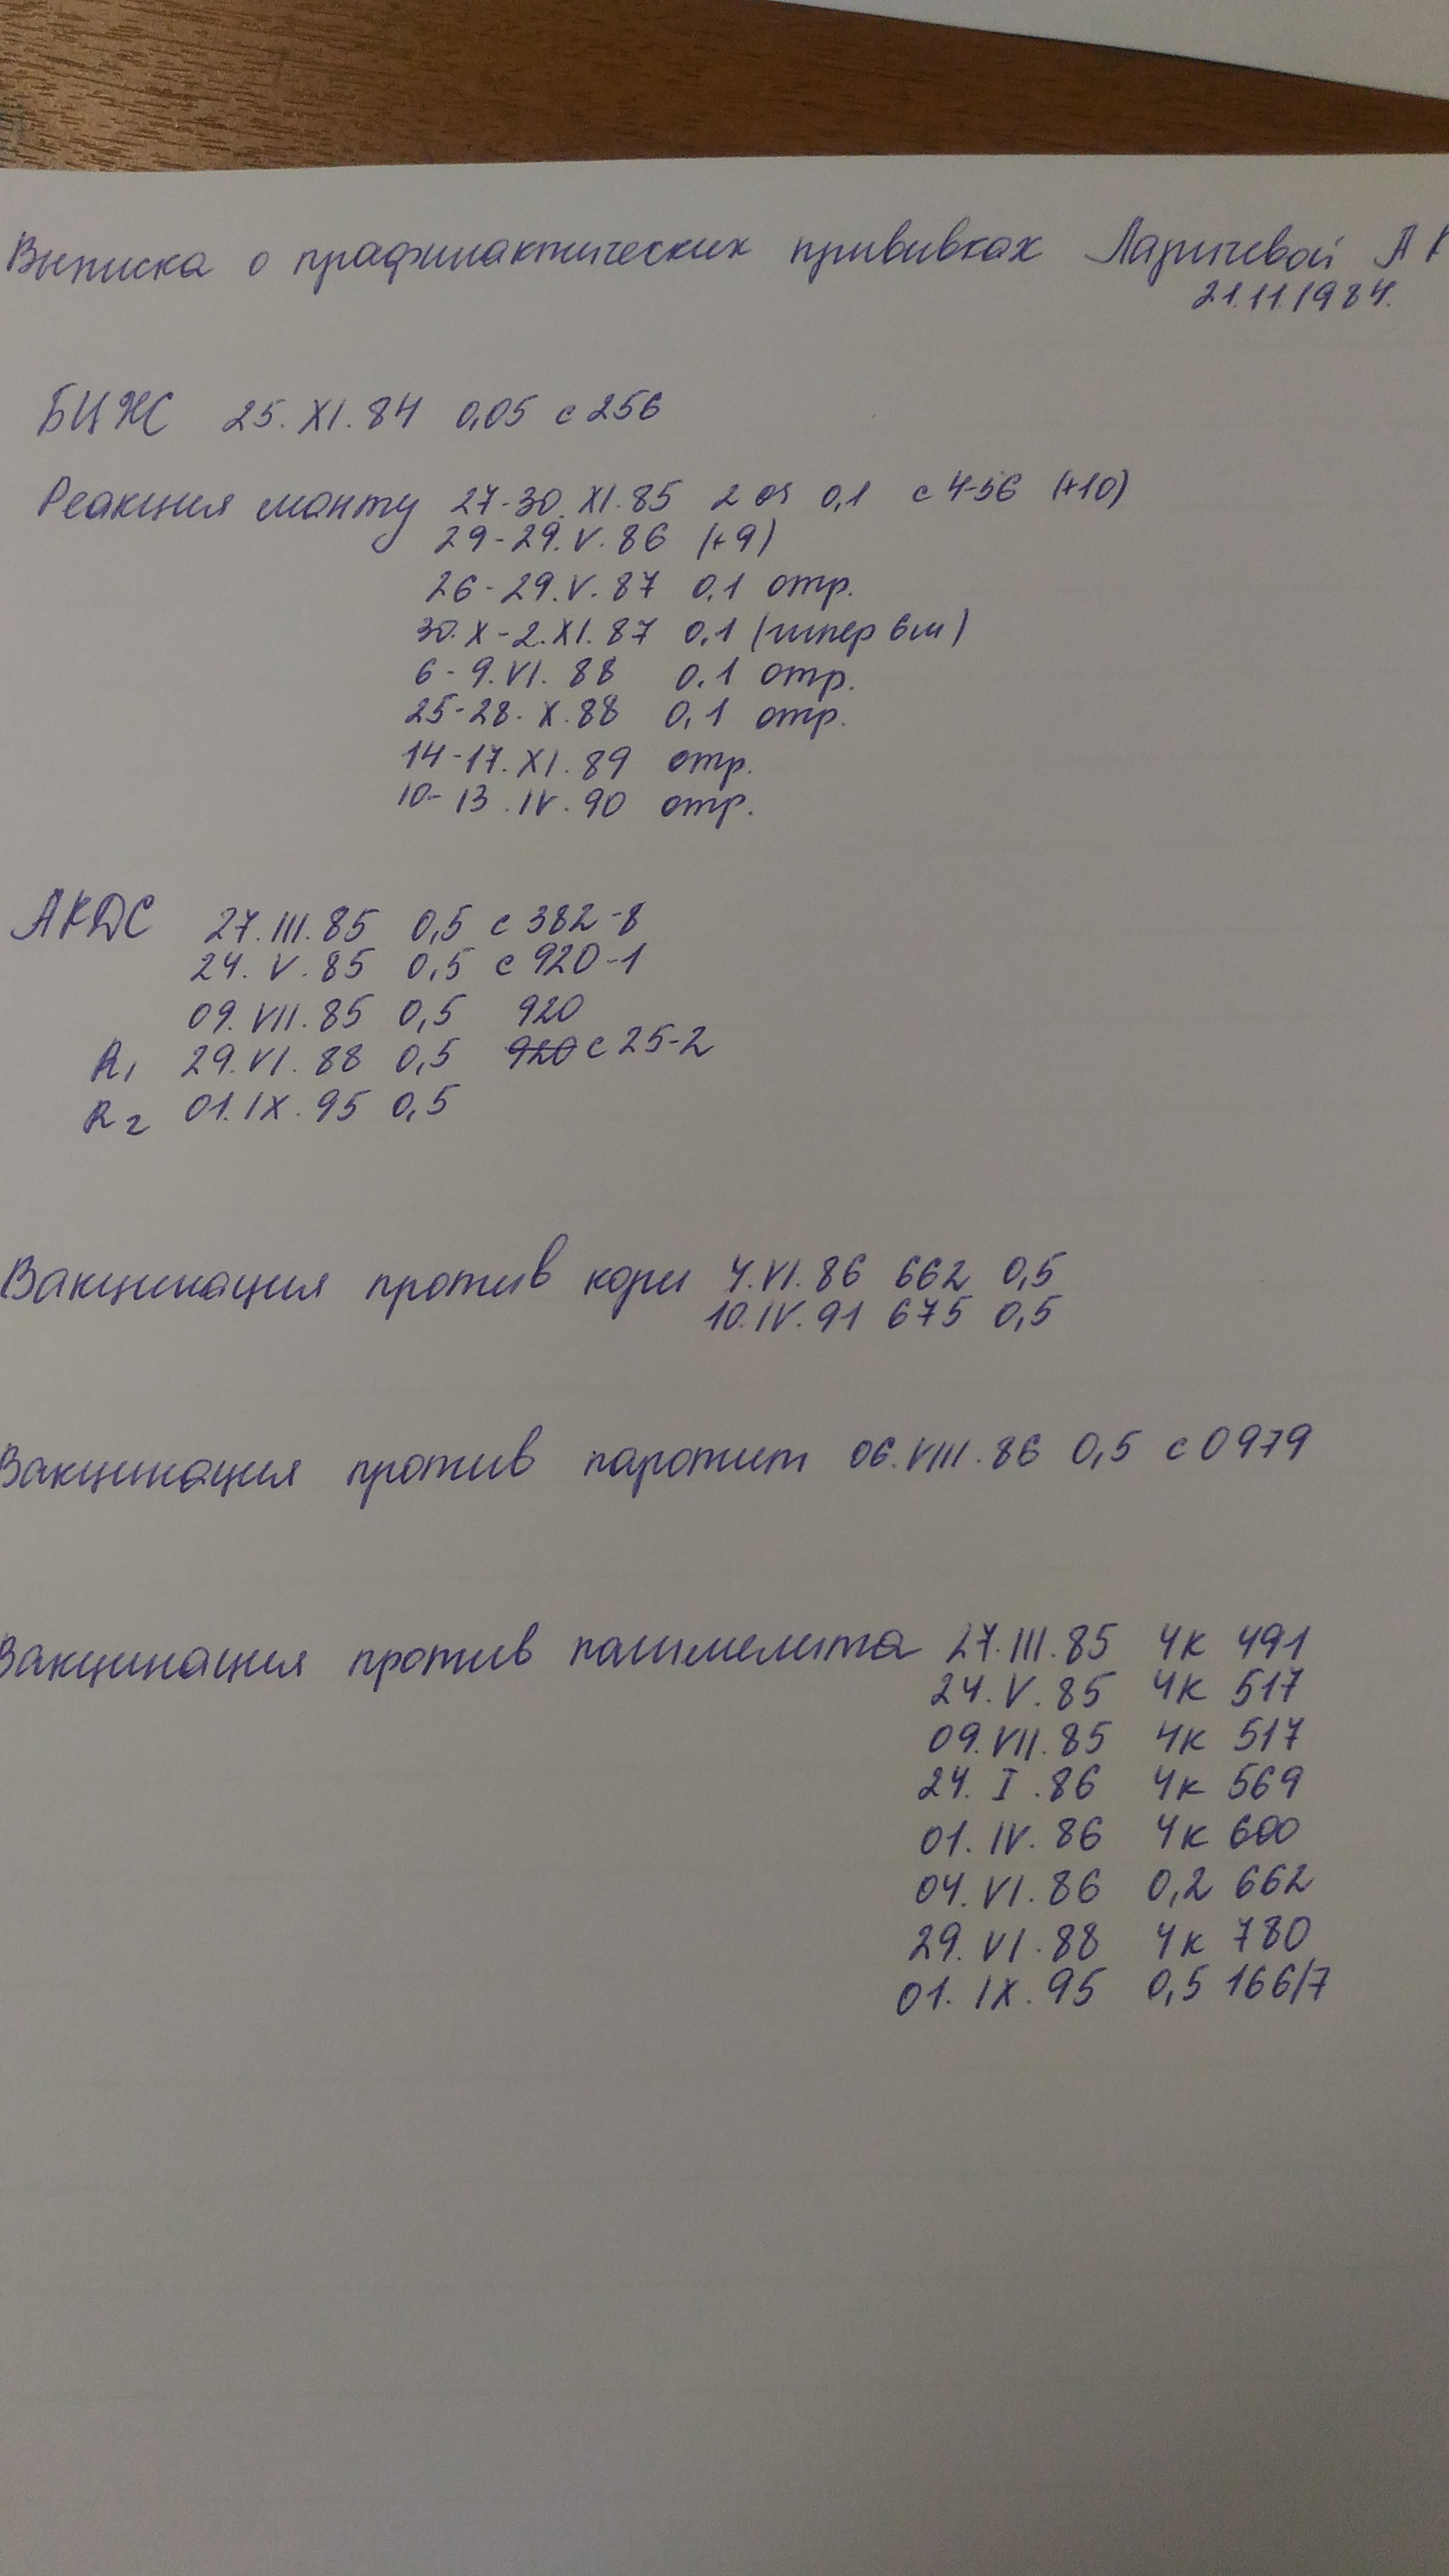 Выписка о прафилактических прививках Ларичевой А
21.11.1984.
БЦЖ 25.XI.84 0,05 с 256
Реакция манту 27-30.XI.85 2 0,1 с 4-56 (+10)
29-29.V.86 (+9)
26-29.V.87 0,1 отр.
30.X-2.XI.87 0,1 (гипер 6м)
6-9.VI.88 0,1 отр.
25-28.X.88 0,1 отр.
14-17.XI.89 отр.
10-13.IV.90 отр.
АКДС 27.III.85 0,5 с 382-8
24.V.85 0,5 с 920-1
09.VII.85 0,5 920
R1 29.VI.88 0,5 920 с 25-2
R2 01.IX.95 0,5
Вакцинация против кори 4.VI.86 662 0,5
10.IV.91 675 0,5
Вакцинация против паротит 06.VIII.86 0,5 с 0979
Вакцинация против 27.III.85 4к 491
24.V.85 4к 517
09.VII.85 4к 517
24.I.86 4к 569
01.IV.86 4к 600
04.VI.86 0,2 662
29.VI.88 4к 780
01.IX.95 0,5 166/7